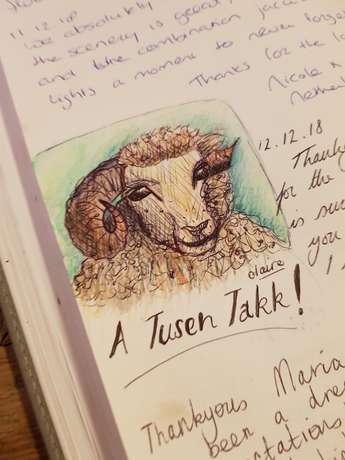 11.12.18
We absolutely
the scenery is great,
and the combination jacuzzi
lights a moment to never forget
Thanks for the
Nicole
Netherl
12.12.18
Thank
for the
is su
you
I
claire
A Tusen Takk!
Thankyou Maria
been a dre
ctations